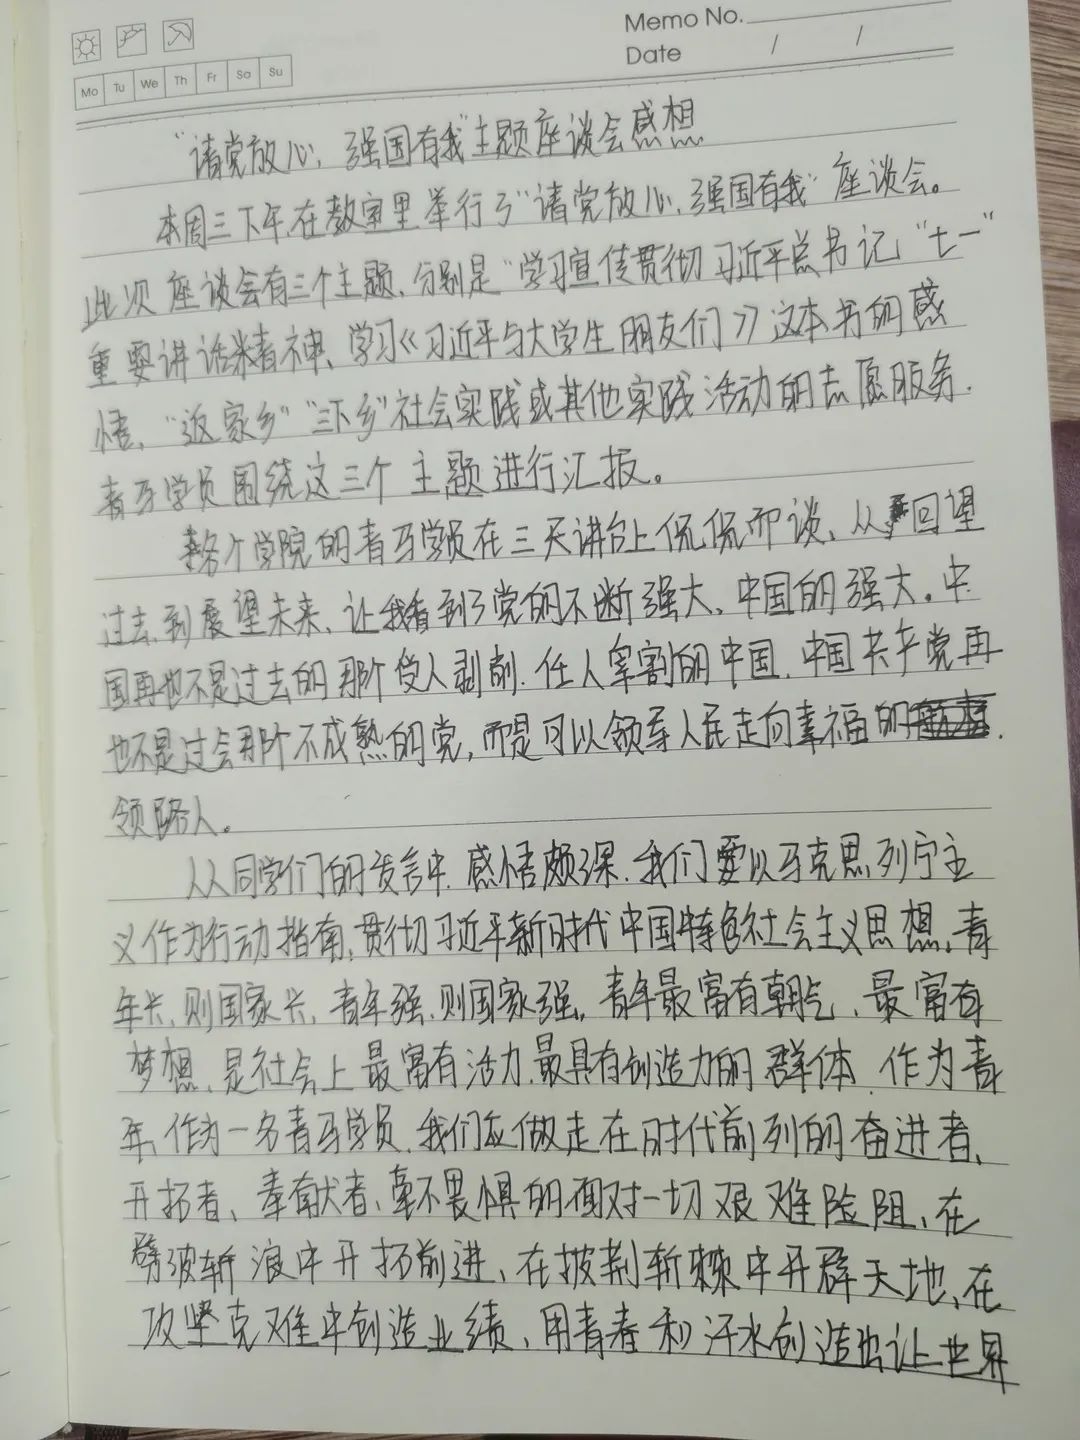 Memo No.
Date / /
Mo Tu We Th Fr Sa Su
"请党放心,强国有我"主题座谈会感想
本周三下午,在教室里举行了"请党放心,强国有我"座谈会。
此次座谈会有三个主题,分别是"学习宣传贯彻习近平总书记"七一"
重要讲话精神、学习《习近平与大学生朋友们》这本书的感
悟、"返家乡""三下乡"社会实践或其他实践活动的志愿服务.
青马学员围绕这三个主题进行汇报。
各个学院的青马学员在三天讲台上侃侃而谈、从回望
过去,到展望未来,让我看到了党的不断强大,中国的强大。中
国再也不是过去的那阶受人剥削.任人宰割的中国,中国共产党再
也不是过会那阶不成熟的党,而是可以领导人民走向幸福的
领路人。
从同学们的发言中,感悟颇深.我们要以马克思列宁主
义作为行动指南,贯彻习近平新时代中国特色社会主义思想,青
年兴,则国家兴,青年强,则国家强,青年最富有朝气、最富有
梦想,是社会上最富有活力,最具有创造力的群体.作为青
年,作为一名青马学员,我们应做走在时代前列的奋进者、
开拓者、奉献者,毫不畏惧的面对一切艰难险阻,在
劈波斩浪中开拓前进、在披荆斩棘中开辟天地、在
攻坚克难中创造业绩,用青春和汗水创造出让世界